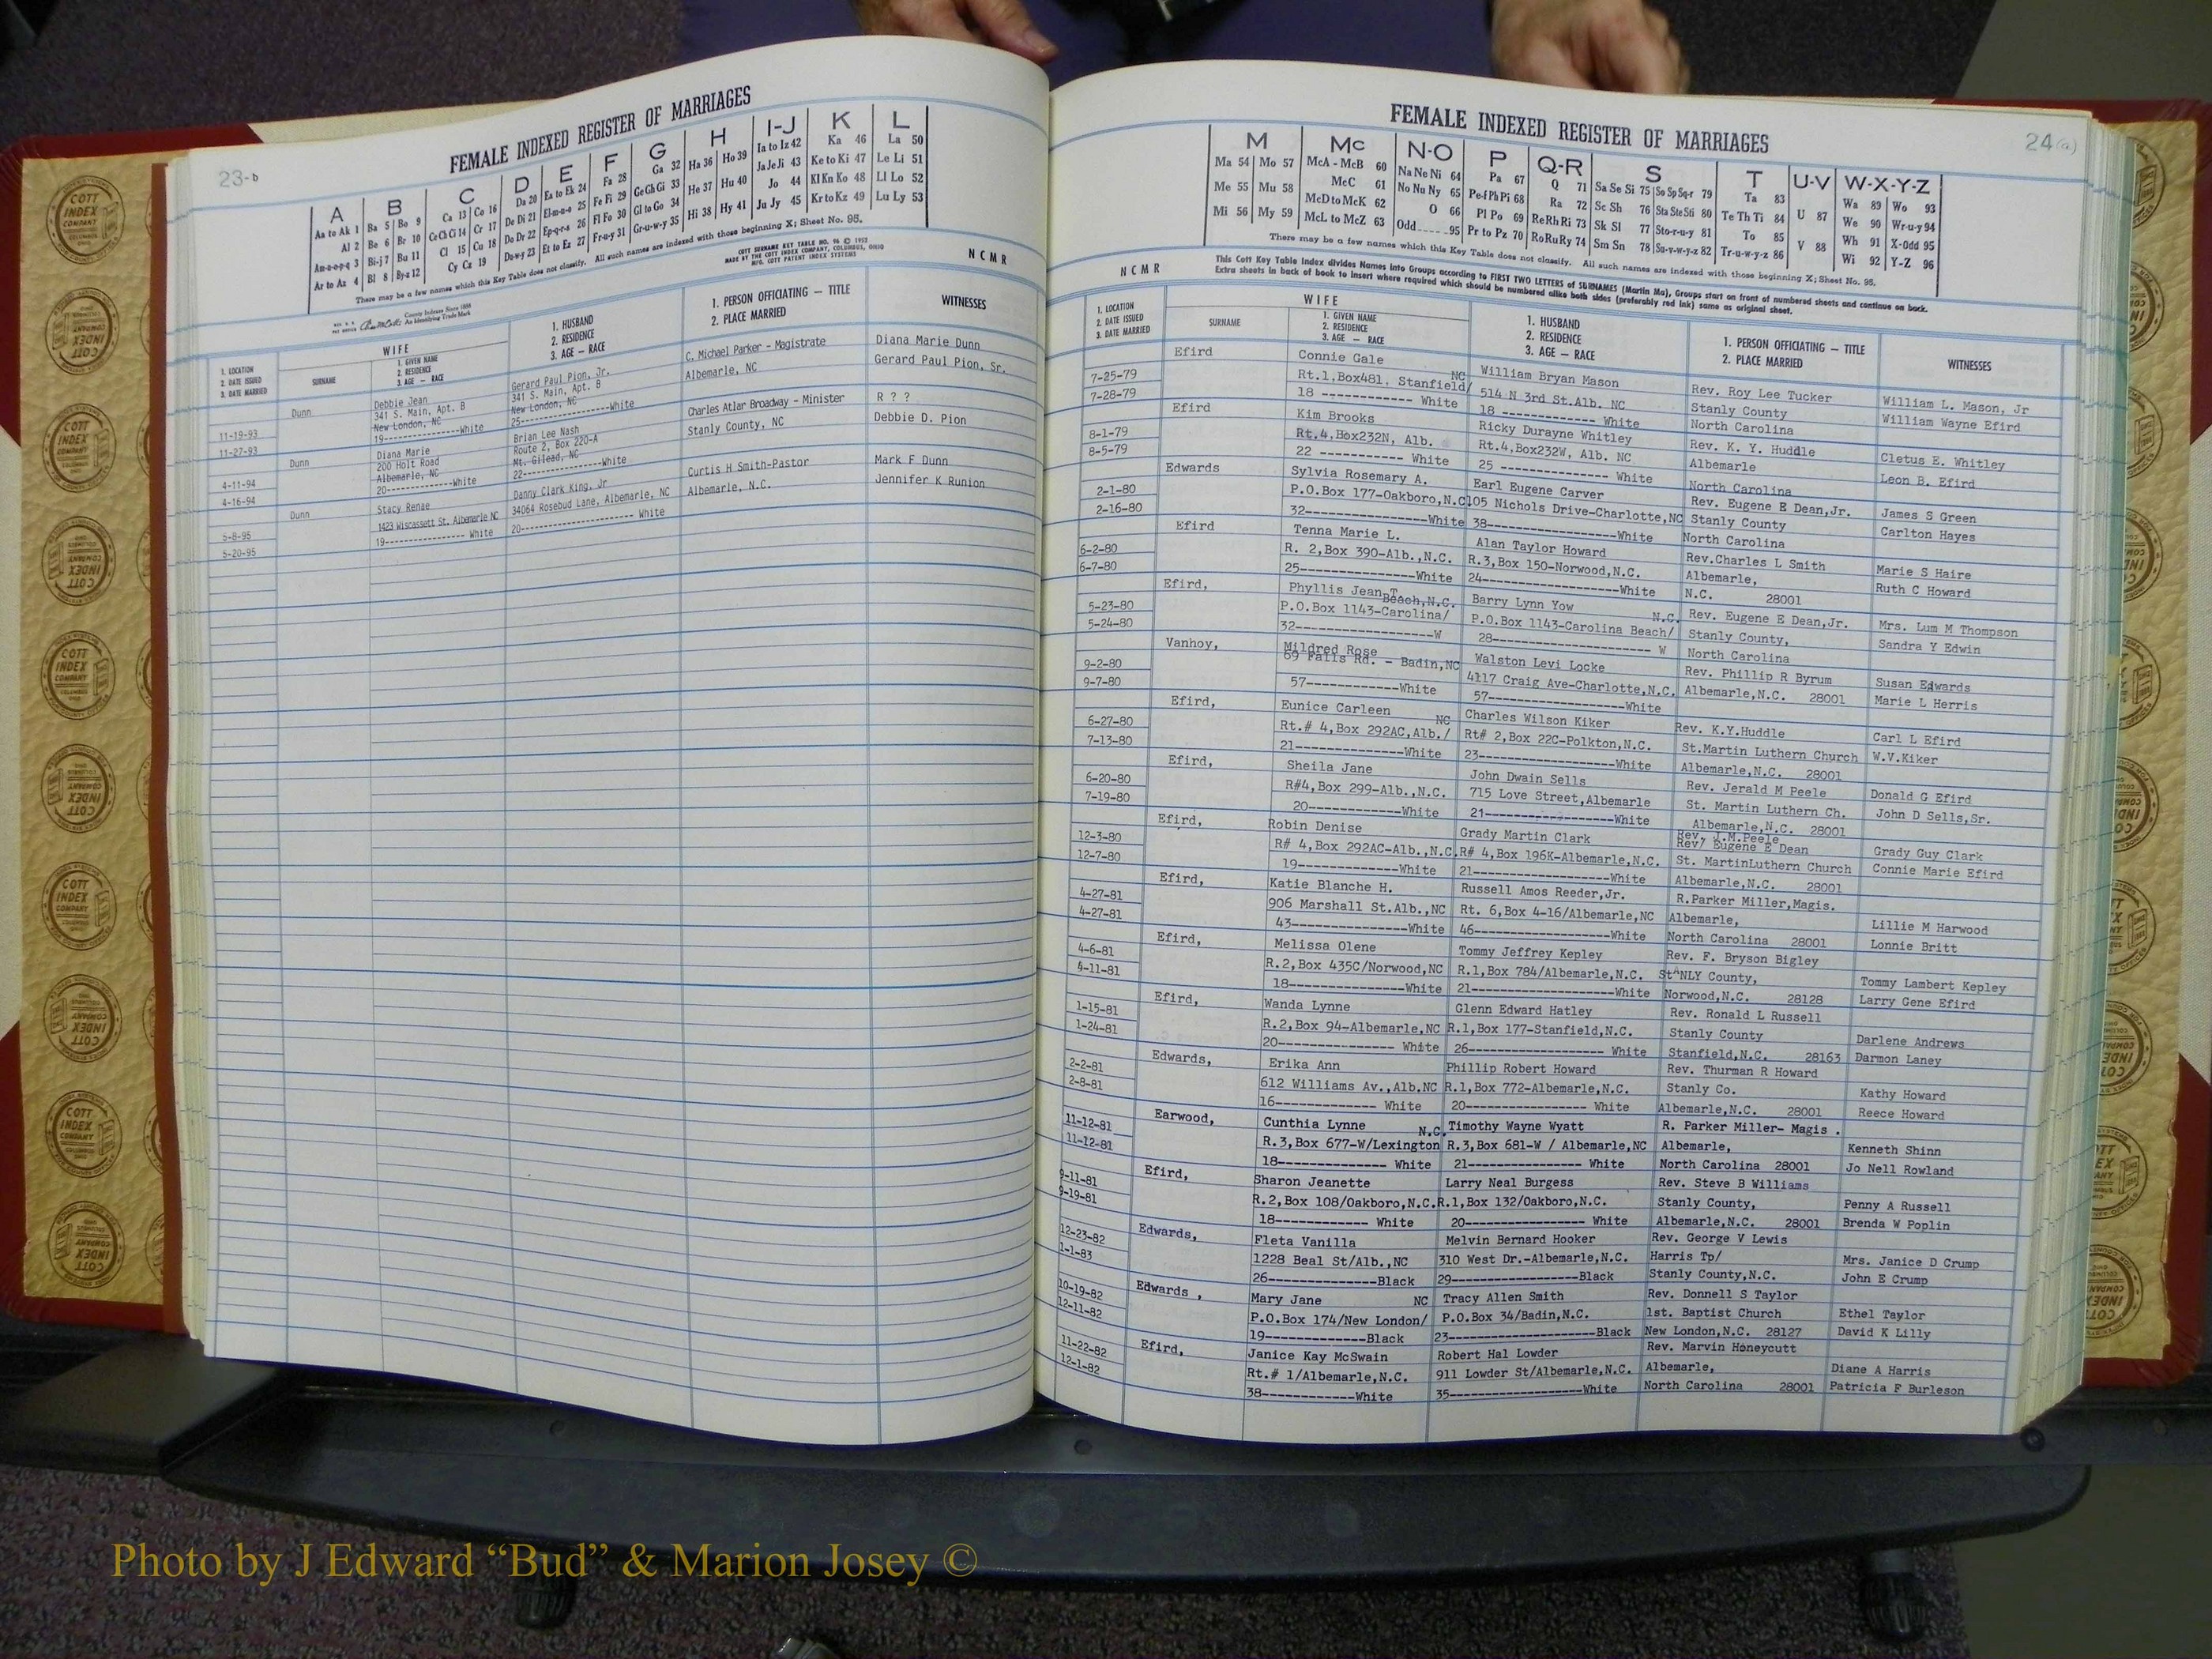 23-b
FEMALE INDEXED REGISTER OF MARRIAGES
A
B
C
D
E
F
G
H
I-J
K
L
Aa to Ak 1
Al 2
Am-n-o-p-q 3
Ar to Az 4
Ba 5
Be 6
Bi-j 7
Bl 8
Bo 9
Br 10
Bu 11
By-z 12
Ca 13
Ce Ch Ci 14
Cl 15
Cy Cz 19
Co 16
Cr 17
Cu 18
Da 20
De Di 21
Do Dr 22
Du-w-y 23
Ea to Ek 24
El-m-n-o 25
Ep-q-r-s 26
Et to Ez 27
Fa 28
Fe Fi 29
Fl Fo 30
Fr-u-y 31
Ga 32
Ge Gh Gi 33
Gl to Go 34
Gr-u-w-y 35
Ha 36
He 37
Hi 38
Ho 39
Hu 40
Hy 41
Ia to Iz 42
Ja Je Ji 43
Jo 44
Ju Jy 45
Ka 46
Ke to Ki 47
Kl Kn Ko 48
Kr to Kz 49
La 50
Le Li 51
Ll Lo 52
Lu Ly 53
There may be a few names which this Key Table does not classify. All such names are indexed with those beginning X; Sheet No. 95.
County Indexes Since 1888
An Identifying Trade Mark
COTT SURNAME KEY TABLE NO. 96 © 1952
MADE BY THE COTT INDEX COMPANY, COLUMBUS, OHIO
MFG. COTT PATENT INDEX SYSTEMS
N C M R
1. LOCATION
2. DATE ISSUED
3. DATE MARRIED
WIFE
SURNAME
1. GIVEN NAME
2. RESIDENCE
3. AGE — RACE
1. HUSBAND
2. RESIDENCE
3. AGE — RACE
1. PERSON OFFICIATING — TITLE
2. PLACE MARRIED
WITNESSES
11-19-93
11-27-93
Dunn
Debbie Jean
341 S. Main, Apt. B
New London, NC
19----------------White
Gerard Paul Pion, Jr.
341 S. Main, Apt. B
New London, NC
25----------------White
C. Michael Parker - Magistrate
Albemarle, NC
Diana Marie Dunn
Gerard Paul Pion, Sr.
4-11-94
4-16-94
Dunn
Diana Marie
200 Holt Road
Albemarle, NC
20----------------White
Brian Lee Nash
Route 2, Box 220-A
Mt. Gilead, NC
22----------------White
Charles Atlar Broadway - Minister
Stanly County, NC
R ? ?
Debbie D. Pion
5-8-95
5-20-95
Dunn
Stacy Renae
1423 Wiscassett St. Albemarle NC
19---------------- White
Danny Clark King, Jr
34064 Rosebud Lane, Albemarle, NC
20---------------------- White
Curtis H Smith-Pastor
Albemarle, N.C.
Mark F Dunn
Jennifer K Runion
24(a)
FEMALE INDEXED REGISTER OF MARRIAGES
M
Mc
N-O
P
Q-R
S
T
U-V
W-X-Y-Z
Ma 54
Me 55
Mi 56
Mo 57
Mu 58
My 59
McA - McB 60
McC 61
McD to McK 62
McL to McZ 63
Na Ne Ni 64
No Nu Ny 65
O 66
Odd 95
Pa 67
Pe-f-Ph Pi 68
Pl Po 69
Pr to Pz 70
Q 71
Ra 72
Re Rh Ri 73
Ro Ru Ry 74
Sa Se Si 75
Sc Sh 76
Sk Sl 77
Sm Sn 78
So Sp Sq-r 79
Sta Ste Sti 80
Sto-r-u-y 81
Su-v-w-y-z 82
Ta 83
Te Th Ti 84
To 85
Tr-u-w-y-z 86
U 87
V 88
Wa 89
We 90
Wh 91
Wi 92
Wo 93
Wr-u-y 94
X-Odd 95
Y-Z 96
There may be a few names which this Key Table does not classify. All such names are indexed with those beginning X; Sheet No. 95.
This Cott Key Table Index divides Names into Groups according to FIRST TWO LETTERS of SURNAMES (Martin Ma), Groups start on front of numbered sheets and continue on back.
Extra sheets in back of book to insert where required which should be numbered alike both sides (preferably red ink) same as original sheet.
N C M R
1. LOCATION
2. DATE ISSUED
3. DATE MARRIED
WIFE
SURNAME
1. GIVEN NAME
2. RESIDENCE
3. AGE — RACE
1. HUSBAND
2. RESIDENCE
3. AGE — RACE
1. PERSON OFFICIATING — TITLE
2. PLACE MARRIED
WITNESSES
7-25-79
7-28-79
Efird
Connie Gale
Rt.1,Box481, Stanfield/ NC
18 ------------ White
William Bryan Mason
514 N 3rd St.Alb. NC
18 ------------ White
Rev. Roy Lee Tucker
Stanly County
North Carolina
William L. Mason, Jr
William Wayne Efird
8-1-79
8-5-79
Efird
Kim Brooks
Rt.4,Box232N, Alb.
22 ----------- White
Ricky Durayne Whitley
Rt.4,Box232W, Alb. NC
25 -------------- White
Rev. K. Y. Huddle
Albemarle
North Carolina
Cletus E. Whitley
Leon B. Efird
2-1-80
2-16-80
Edwards
Sylvia Rosemary A.
P.O.Box 177-Oakboro,N.C.
32----------------White
Earl Eugene Carver
105 Nichols Drive-Charlotte,NC
38----------------White
Rev. Eugene E Dean,Jr.
Stanly County
North Carolina
James S Green
Carlton Hayes
6-2-80
6-7-80
Efird
Tenna Marie L.
R. 2,Box 390-Alb.,N.C.
25---------------White
Alan Taylor Howard
R.3,Box 150-Norwood,N.C.
24------------------White
Rev.Charles L Smith
Albemarle,
N.C. 28001
Marie S Haire
Ruth C Howard
5-23-80
5-24-80
Efird,
Phyllis Jean T.
P.O.Box 1143-Carolina/ Beach,N.C.
32-----------------W
Barry Lynn Yow
P.O.Box 1143-Carolina Beach/ N.C.
28-------------------- W
Rev. Eugene E Dean,Jr.
Stanly County,
North Carolina
Mrs. Lum M Thompson
Sandra Y Edwin
9-2-80
9-7-80
Vanhoy,
Mildred Rose
69 Falls Rd. - Badin,NC
57-------------White
Walston Levi Locke
4117 Craig Ave-Charlotte,N.C.
57------------------White
Rev. Phillip R Byrum
Albemarle,N.C. 28001
Susan Edwards
Marie L Herris
6-27-80
7-13-80
Efird,
Eunice Carleen
Rt.# 4,Box 292AC,Alb./ NC
21---------------White
Charles Wilson Kiker
Rt# 2,Box 22C-Polkton,N.C.
23------------------White
Rev. K.Y.Huddle
St.Martin Luthern Church
Albemarle,N.C. 28001
Carl L Efird
W.V.Kiker
6-20-80
7-19-80
Efird,
Sheila Jane
R#4,Box 299-Alb.,N.C.
20-------------White
John Dwain Sells
715 Love Street,Albemarle
21-----------------White
Rev. Jerald M Peele
St. Martin Luthern Ch.
Albemarle,N.C. 28001
Donald G Efird
John D Sells,Sr.
12-3-80
12-7-80
Efird,
Robin Denise
R# 4,Box 292AC-Alb.,N.C.
19---------------White
Grady Martin Clark
R# 4,Box 196K-Albemarle,N.C.
21------------------White
Rev. J.M.Peele
Rev/ Eugene E Dean
St. MartinLuthern Church
Albemarle,N.C. 28001
Grady Guy Clark
Connie Marie Efird
4-27-81
4-27-81
Efird,
Katie Blanche H.
906 Marshall St.Alb.,NC
43---------------White
Russell Amos Reeder,Jr.
Rt. 6,Box 4-16/Albemarle,NC
46-------------------White
R.Parker Miller,Magis.
Albemarle,
North Carolina 28001
Lillie M Harwood
Lonnie Britt
4-6-81
4-11-81
Efird,
Melissa Olene
R.2,Box 435C/Norwood,NC
18---------------White
Tommy Jeffrey Kepley
R.1,Box 784/Albemarle,N.C.
21-------------------White
Rev. F. Bryson Bigley
St^NLY County,
Norwood,N.C. 28128
Tommy Lambert Kepley
Larry Gene Efird
1-15-81
1-24-81
Efird,
Wanda Lynne
R.2,Box 94-Albemarle,NC
20--------------- White
Glenn Edward Hatley
R.1,Box 177-Stanfield,N.C.
26------------------- White
Rev. Ronald L Russell
Stanly County
Stanfield,N.C. 28163
Darlene Andrews
Darmon Laney
2-2-81
2-8-81
Edwards,
Erika Ann
612 Williams Av.,Alb.NC
16------------- White
Phillip Robert Howard
R.1,Box 772-Albemarle,N.C.
20---------------- White
Rev. Thurman R Howard
Stanly Co.
Albemarle,N.C. 28001
Kathy Howard
Reece Howard
11-12-81
11-12-81
Earwood,
Cunthia Lynne
R.3,Box 677-W/Lexington N.C.
18-------------- White
Timothy Wayne Wyatt
R.3,Box 681-W / Albemarle,NC
21---------------- White
R. Parker Miller- Magis .
Albemarle,
North Carolina 28001
Kenneth Shinn
Jo Nell Rowland
9-11-81
9-19-81
Efird,
Sharon Jeanette
R.2,Box 108/Oakboro,N.C.
18------------ White
Larry Neal Burgess
R.1,Box 132/Oakboro,N.C.
20----------------- White
Rev. Steve B Williams
Stanly County,
Albemarle,N.C. 28001
Penny A Russell
Brenda W Poplin
12-23-82
1-1-83
Edwards,
Fleta Vanilla
1228 Beal St/Alb.,NC
26--------------Black
Melvin Bernard Hooker
310 West Dr.-Albemarle,N.C.
29-------------------Black
Rev. George V Lewis
Harris Tp/
Stanly County,N.C.
Mrs. Janice D Crump
John E Crump
10-19-82
12-11-82
Edwards ,
Mary Jane NC
P.O.Box 174/New London/
19-------------Black
Tracy Allen Smith
P.O.Box 34/Badin,N.C.
23----------------------Black
Rev. Donnell S Taylor
1st. Baptist Church
New London,N.C. 28127
Ethel Taylor
David K Lilly
11-22-82
12-1-82
Efird,
Janice Kay McSwain
Rt.# 1/Albemarle,N.C.
38-------------White
Robert Hal Lowder
911 Lowder St/Albemarle,N.C.
35--------------------White
Rev. Marvin Honeycutt
Albemarle,
North Carolina 28001
Diane A Harris
Patricia F Burleson
Photo by J Edward “Bud” & Marion Josey ©